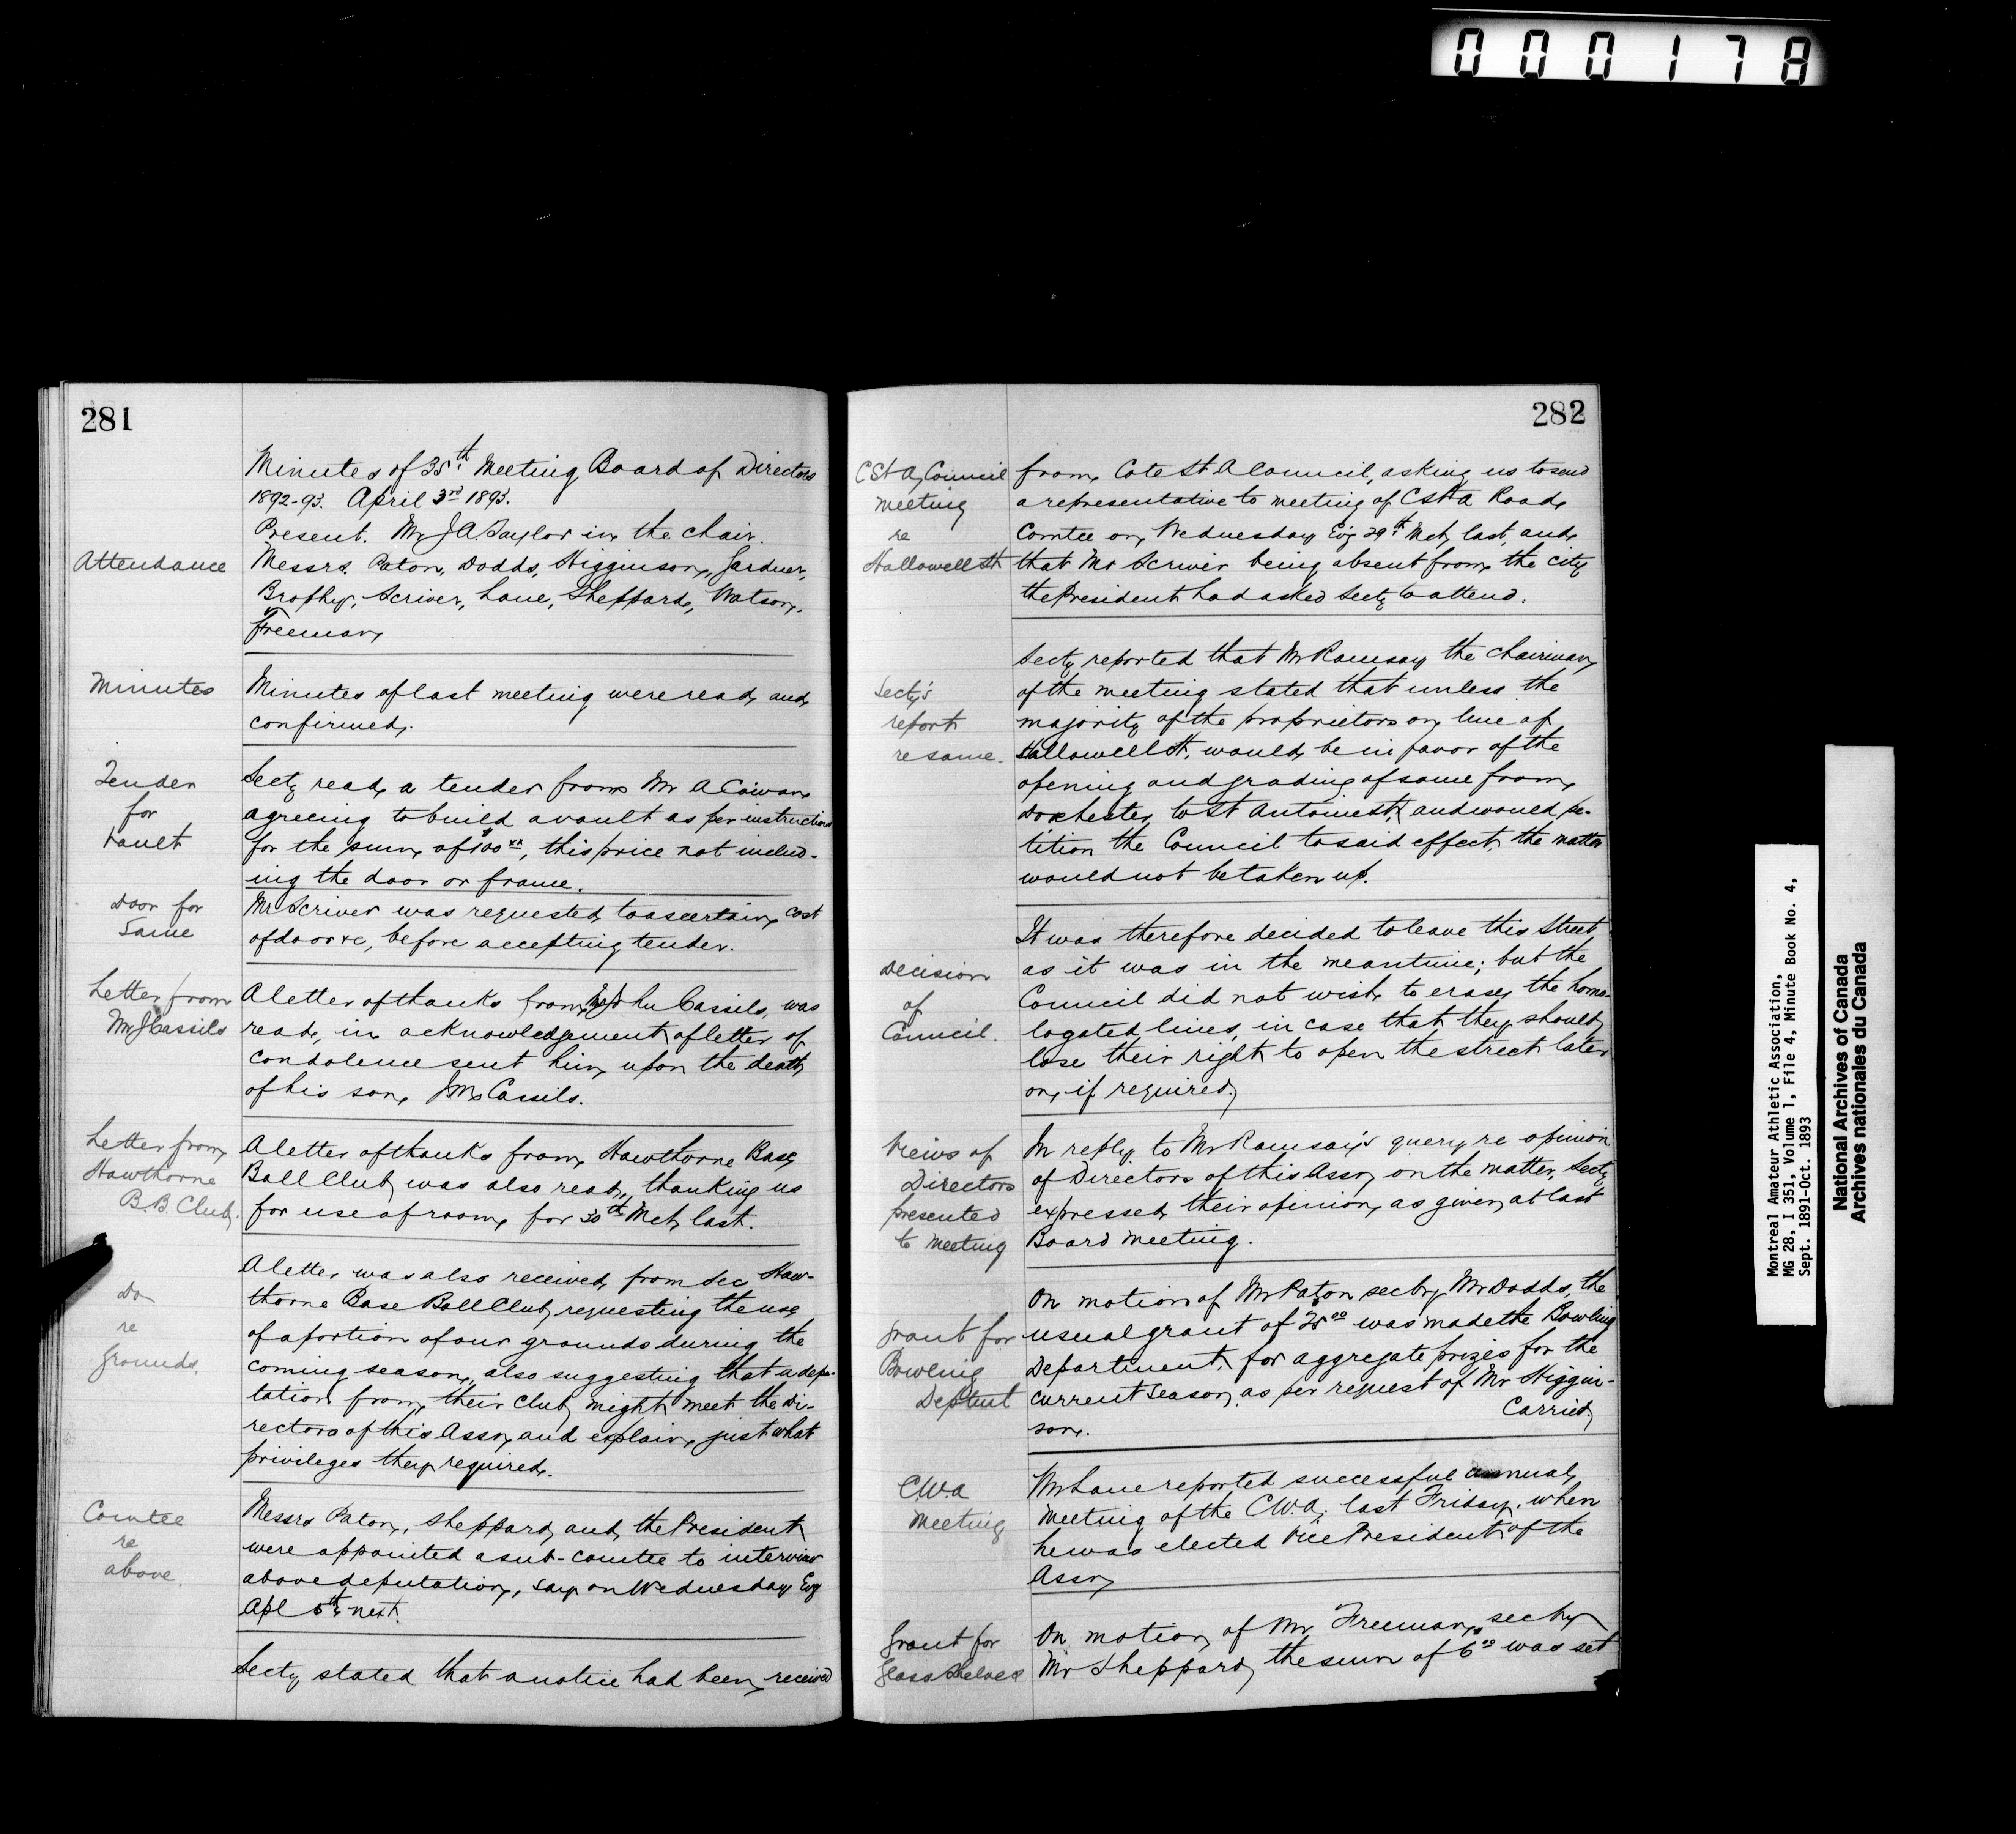 000178
281
Minutes of 35th Meeting Board of Directors
1892-93. April 3rd 1893.
Present. Mr J A Taylor in the chair.
Attendance
Messrs. Paton, Dodds, Higginson, Gardner,
Brophy, Scriver, Lane, Sheppard, Watson,
Freeman
Minutes
Minutes of last meeting were read and
confirmed.
Tender
for
Vault
Secty read a tender from Mr A Cowan
agreeing to build a vault as per instructions
for the sum of $100xx, this price not includ-
ing the door or frame.
Door for
Same
Mr Scriver was requested to ascertain cost
of door &c, before accepting tender.
Letter from
Mr J Cassils
A letter of thanks from Mr John Cassils, was
read, in acknowledgement of letter of
condolence sent him upon the death
of his son, J M Cassils.
Letter from
Hawthorne
B.B. Club.
A letter of thanks from Hawthorne Base
Ball Club was also read, thanking us
for use of room for 30th Mch last.
Do
re
Grounds.
A letter was also received from Sec Haw-
thorne Base Ball Club, requesting the use
of a portion of our grounds during the
coming season, also suggesting that a depu-
tation from their Club might meet the Di-
rectors of this Assn, and explain just what
privileges they required.
Comtee
re
above.
Messrs Paton, Sheppard, and the President
were appointed a sub-comtee to interview
above deputation, say on Wednesday Evg
Apl 5th next.
Secty stated that a notice had been received
282
C St A Council
Meeting
re
Hallowell St
from Cote St A Council, asking us to send
a representative to meeting of C St A Road
Comtee on Wednesday Evg 29th Mch last, and
that Mr Scriver being absent from the city
the President had asked Secty to attend.
Secty's
report
re same.
Secty reported that Mr Ramsay the Chairman
of the meeting stated that unless the
majority of the proprietors on line of
Hallowell St. would be in favor of the
opening and grading of same from
Dorchester to St Antoine St, and would pe-
tition the Council to said effect, the matter
would not be taken up.
Decision
of
Council.
It was therefore decided to leave this Street
as it was in the meantime; but the
Council did not wish to erase the homo-
logated lines, in case that they should
lose their right to open the street later
on, if required.
Views of
Directors
presented
to Meeting
In reply to Mr Ramsay's query re opinion
of Directors of this Assn on the matter, Secty
expressed their opinion, as given at last
Board Meeting.
Grant for
Bowling
Deptmt
On motion of Mr Paton secby Mr Dodds, the
usual grant of $25oo was made the Bowling
Department, for aggregate prizes for the
current season, as per request of Mr Higgin-
son.
Carried,
C.W.A
Meeting
Mr Lane reported successful annual
Meeting of the C.W.A. last Friday, when
he was elected Vice President of the
Assn
Grant for
Glass Shelves
On motion of Mr Freeman, secby
Mr Sheppard, the sum of $6oo was set
Montreal Amateur Athletic Association,
MG 28, I 351, Volume 1, File 4, Minute Book No. 4,
Sept. 1891-Oct. 1893
National Archives of Canada
Archives nationales du Canada